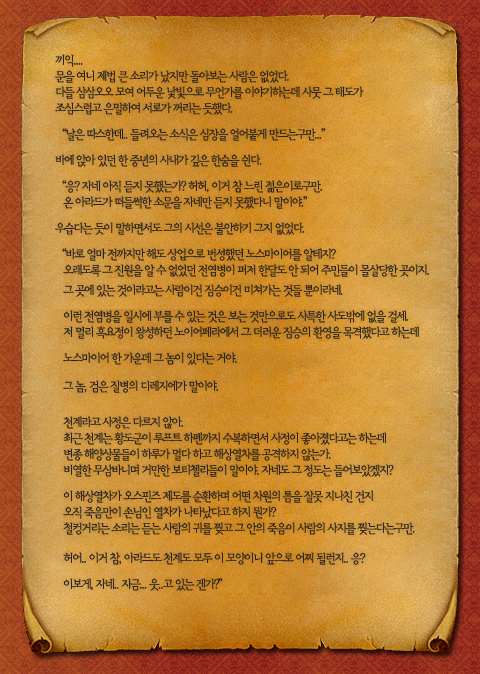 끼익....
문을 여니 제법 큰 소리가 났지만 돌아보는 사람은 없었다.
다들 삼삼오오 모여 어두운 낯빛으로 무언가를 이야기하는데 사뭇 그 태도가
조심스럽고 은밀하여 서로가 꺼리는 듯했다.
“날은 따스한데.. 들려오는 소식은 심장을 얼어붙게 만드는구만...”
바에 앉아 있던 한 중년의 사내가 깊은 한숨을 쉰다.
“응? 자네 아직 듣지 못했는가? 허허, 이거 참 느린 젊은이로구만.
온 아라드가 떠들썩한 소문을 자네만 듣지 못했다니 말이야.”
우습다는 듯이 말하면서도 그의 시선은 불안하기 그지 없었다.
“바로 얼마 전까지만 해도 상업으로 번성했던 노스마이어를 알테지?
오래도록 그 진원을 알 수 없었던 전염병이 퍼져 한달도 안 되어 주민들이 몰살당한 곳이지.
그 곳에 있는 것이라고는 사람이건 짐승이건 미쳐가는 것들 뿐이라네.
이런 전염병을 일시에 부를 수 있는 것은 보는 것만으로도 사특한 사도밖에 없을 걸세.
저 멀리 흑요정이 왕성하던 노이어페라에서 그 더러운 짐승의 환영을 목격했다고 하는데
노스마이어 한 가운데 그 놈이 있다는 거야.
그 놈, 검은 질병의 디레지에가 말이야.
천계라고 사정은 다르지 않아.
최근 천계는 황도군이 루프트 하펜까지 수복하면서 사정이 좋아졌다고는 하는데
변종 해양상물들이 하루가 멀다 하고 해상열차를 공격하지 않는가.
비열한 무삼바니며 거만한 보티첼리들이 말이야. 자네도 그 정도는 들어보았겠지?
이 해상열차가 오스핀즈 제도를 순환하며 어떤 차원의 틈을 잘못 지나친 건지
오직 죽음만이 손님인 열차가 나타났다고 하지 뭔가?
철컹거리는 소리는 듣는 사람의 귀를 찢고 그 안의 죽음이 사람의 사지를 찢는다는구만.
허어.. 이거 참, 아라드도 천계도 모두 이 모양이니 앞으로 어찌 될런지.. 응?
이보게, 자네.. 지금... 웃..고 있는 겐가?”